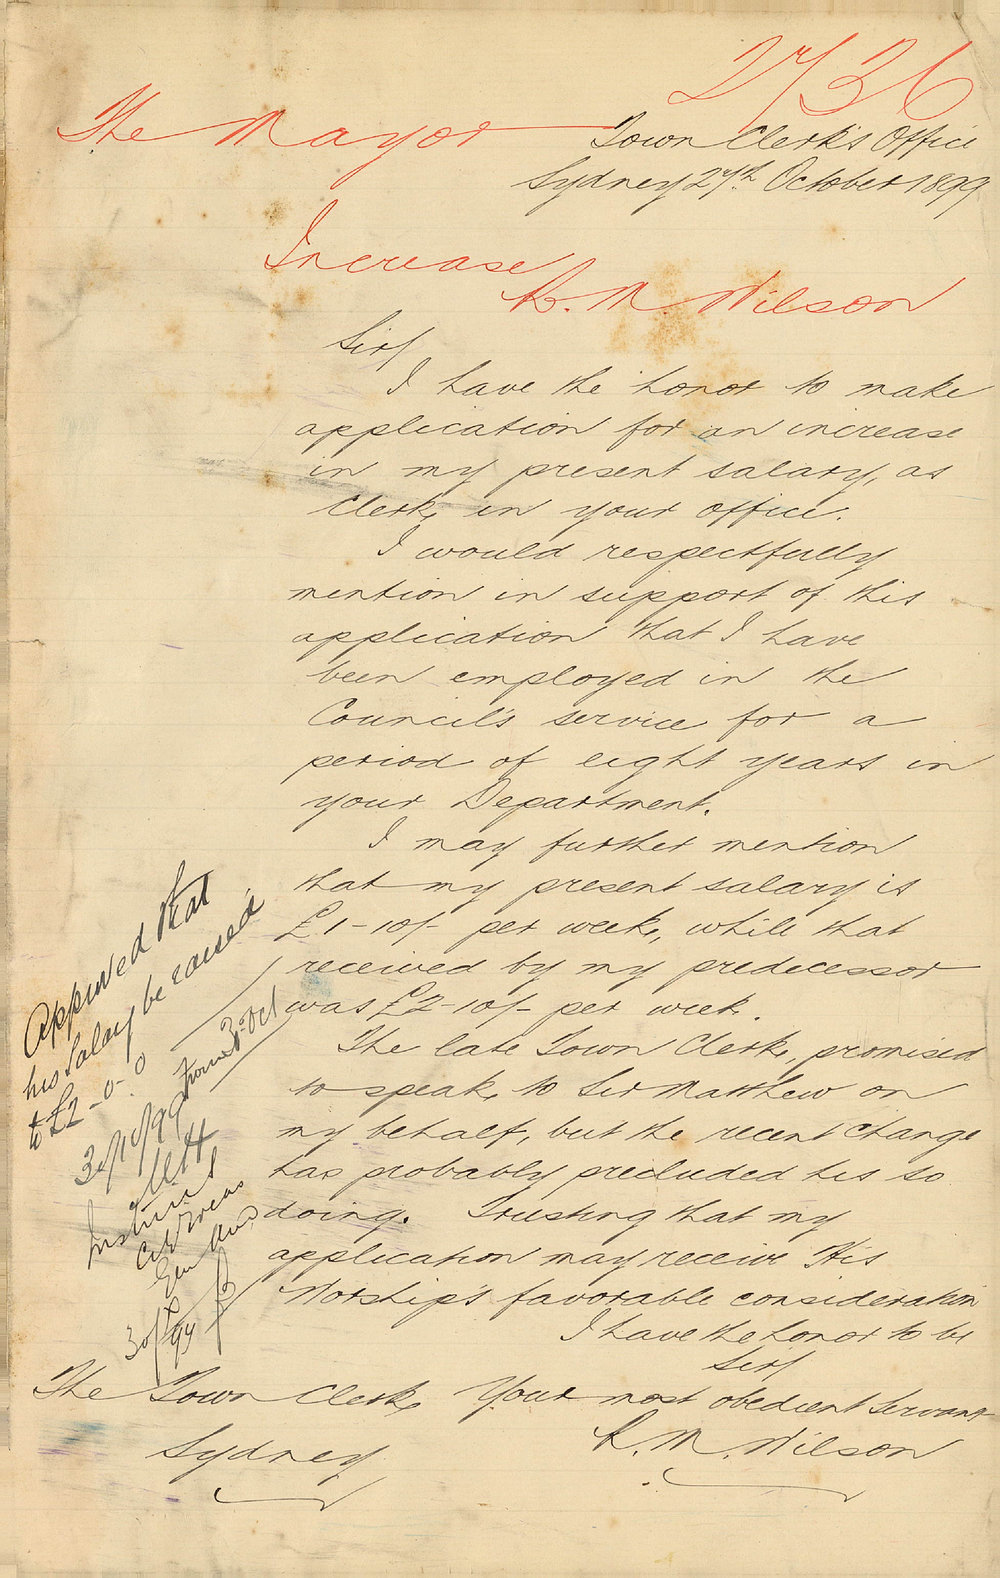 2736
The Mayor
Town Clerk's Office
Sydney 27th October 1899
Increase
R. M. Wilson
Sir/
I have the honor to make
application for an increase
in my present salary, as
Clerk, in your office.
I would respectfully
mention in support of this
application that I have
been employed in the
Council's service for a
period of eight years in
your Department.
I may further mention
that my present salary is
£1-10/- per week, while that
received by my predecessor
was £2-10/- per week.
The late Town Clerk, promised
to speak, to Sir Matthew on
my behalf, but the recent change
has probably precluded his so
doing. Trusting that my
application may receive His
Worship's favorable consideration
I have the honor to be
Sir/
Your most obedient Servant
R. M. Wilson
The Town Clerk
Sydney
Approved that
his Salary be raised
to £2-0-0
from 3 Oct
30/10/99
M H
Instruct
City Treas
30/X/99